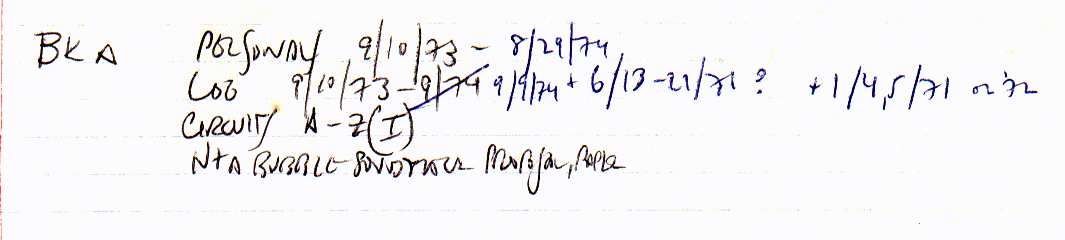 BK A PERSONAL 9/10/73 - 8/29/74
LOG 9/10/73 - 9/74 9/9/74 + 6/13-21/71 ? + 1/4,5/71 or 72
CIRCUITS A-Z (I)
BUBBLE PROPOSAL, PAPER